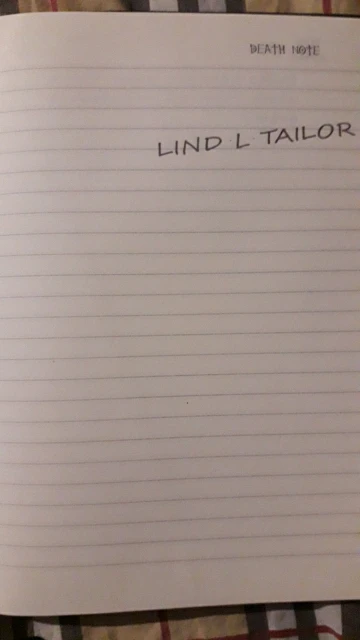 DEATH NOTE
LIND L TAILOR